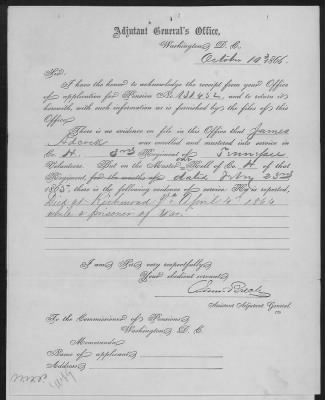 Adjutant General's Office,
Washington, D. C.
October 10th 1866.
Sir:
I have the honor to acknowledge the receipt from your Office
of application for Pension No. 131452, and to return it
herewith, with such information as is furnished by the files of this
Office.
There is no evidence on file in this Office that James
was enrolled and mustered into service in
Co. H. 2nd Regiment of Tennessee
Volunteers. But on the Muster Roll of Co. H of that
Regiment for the months of dated Feby 23rd
1865, there is the following evidence of service: He is reported,
Died at Richmond Va April 4th 1864
while a prisoner of War.
I am, Sir, very respectfully,
Your obedient servant,
Assistant Adjutant General.
To the Commissioner of Pensions,
Washington, D. C.
Memoranda:
Name of applicant,
Address,